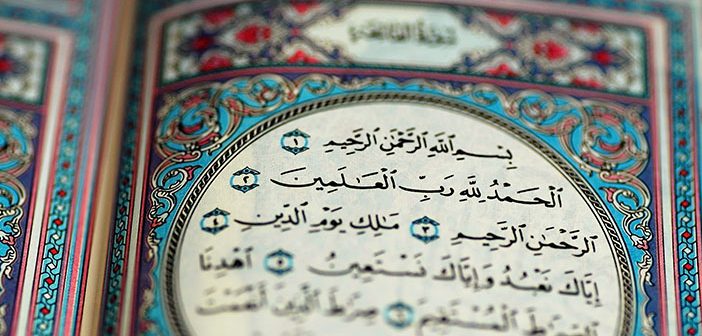 سُورَةُ الفَاتِحَةِ
بِسْمِ ٱللَّهِ ٱلرَّحْمَٰنِ ٱلرَّحِيمِ ١
ٱلْحَمْدُ لِلَّهِ رَبِّ ٱلْعَٰلَمِينَ ٢
ٱلرَّحْمَٰنِ ٱلرَّحِيمِ ٣ مَٰلِكِ يَوْمِ ٱلدِّينِ ٤
إِيَّاكَ نَعْبُدُ وَإِيَّاكَ نَسْتَعِينُ ٥ ٱهْدِنَا
ٱلصِّرَٰطَ ٱلْمُسْتَقِيمَ ٦ صِرَٰطَ ٱلَّذِينَ أَنْعَمْتَ